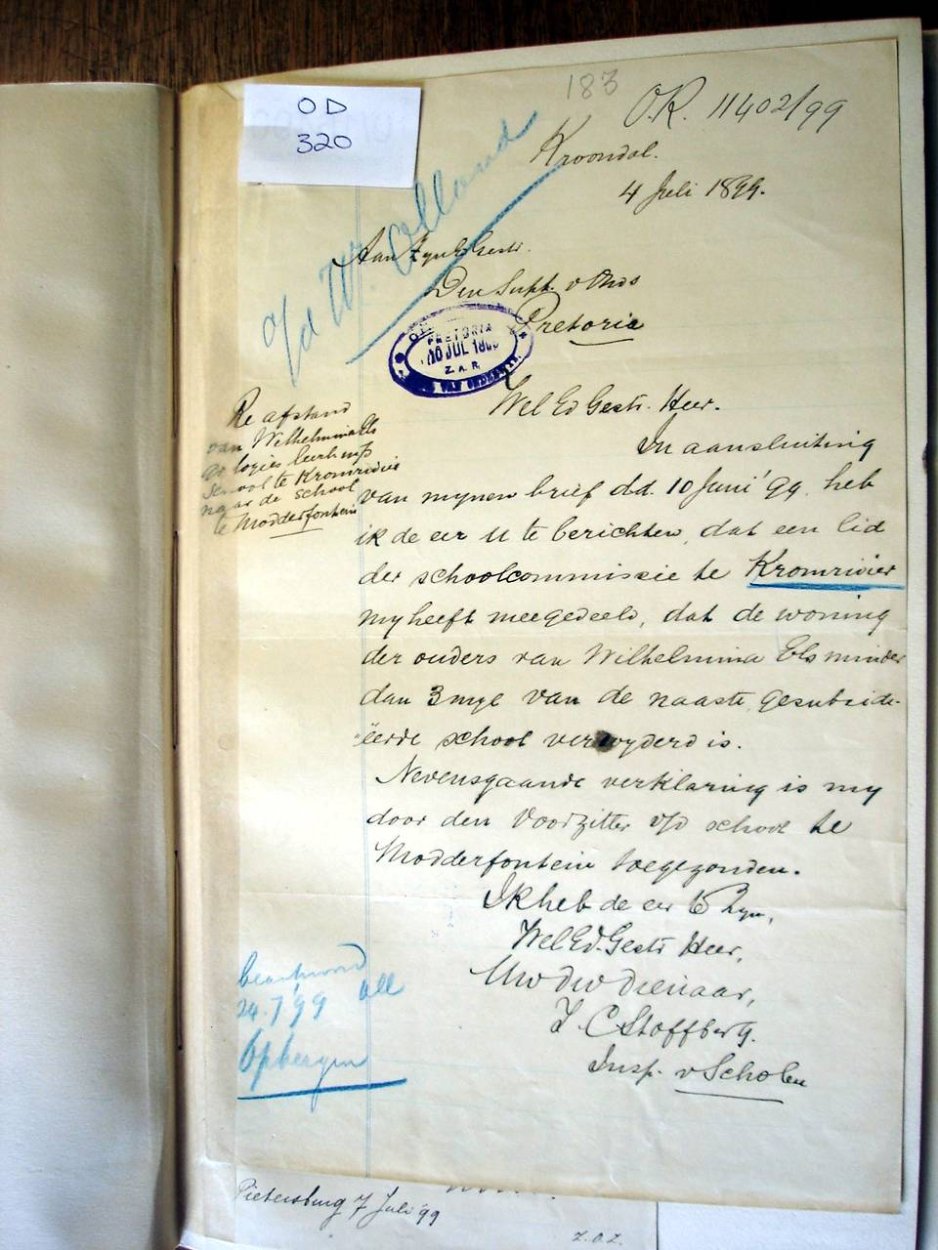 183
O.R. 11402/99
OD
320
Kroondal.
4 Juli 1899.
o/d W. Olland
Aan ZynEdGestr.
Den Supt. v Ond
Pretoria
PRETORIA
10 JUL 18
Z.A.R.
VAN ONDERWYS
Wel Ed Gestr. Heer.
Re afstand
van Wilhelmina Els
school te Kromrivier
naar de school
te Modderfontein
In aansluiting
van mynen brief dd. 10 Juni '99 heb
ik de eer U te berichten, dat een lid
der schoolcommissie te Kromrivier
my heeft meegedeeld, dat de woning
der ouders van Wilhelmina Els minder
dan 3 myl van de naaste gesubside-
ëerde school verwyderd is.
Nevensgaande verklaring is my
door den Voorzitter v/d school te
Modderfontein toegezonden.
Ik heb de eer te Zyn,
Wel Ed. Gestr Heer,
Uw dw dienaar,
J. C Stoffberg.
Insp. v Scholen
beantwoord
24.7.'99 Oll
Opbergen
Pietersburg 7 Juli '99
Z.O.Z.